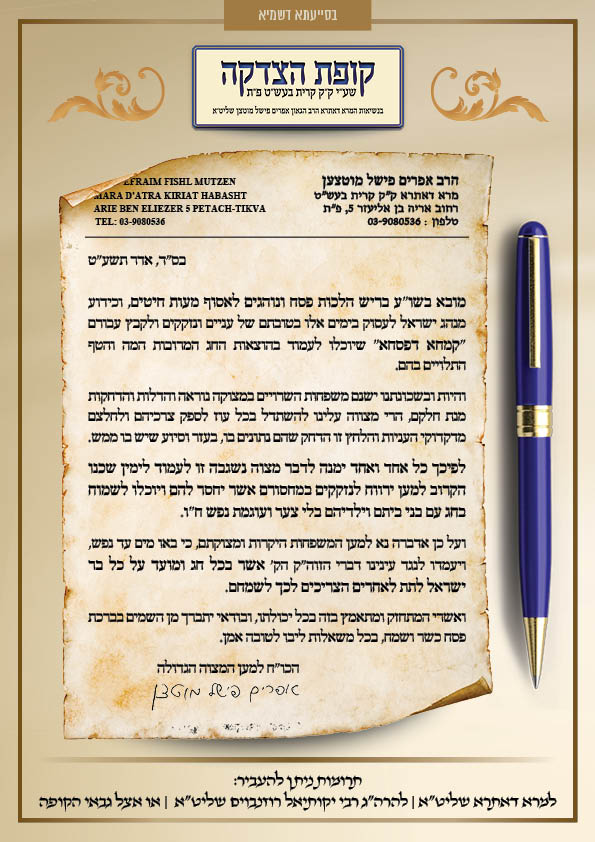 בסייעתא דשמיא
קופת הצדקה
שע"י ק"ק קרית בעש"ט פ"ת
בנשיאות המרא דאתרא הרב הגאון אפרים פישל מוטצן שליט"א
EFRAIM FISHL MUTZEN
MARA D'ATRA KIRIAT HABASHT
ARIE BEN ELIEZER 5 PETACH-TIKVA
TEL: 03-9080536
הרב אפרים פישל מוטצען
מרא דאתרא ק"ק קרית בעש"ט
רחוב אריה בן אליעזר 5, פ"ת
טלפון : 03-9080536
בס"ד, אדר תשע"ט
מובא בשו"ע בריש הלכות פסח ונוהגים לאסוף מעות חיטים, וכידוע
מנהג ישראל לעסוק בימים אלו בטובתם של עניים ונזקקים ולקבץ עבורם
"קמחא דפסחא" שיוכלו לעמוד בהוצאות החג המרובות המה והטף
התלויים בהם.
והיות ובשכונתנו ישנם משפחות השרויים במצוקה נוראה והדלות והדחקות
מנת חלקם, הרי מצווה עלינו להשתדל בכל עוז לספק צרכיהם ולחלצם
מדקדוקי העניות והלחץ זו הדחק שהם נתונים בו, בעזר וסידע שיש בו ממש.
לפיכך כל אחד ואחד ימנה לדבר מצוה נשגבה זו לעמוד לימין שכנו
הקרוב למען ירווח לנזקקים במחסורם אשר יחסר להם ויוכלו לשמוח
בחג עם בני ביתם וילדיהם בלי צער ועוגמת נפש ח"ו.
ועל כן אדברה נא למען המשפחות היקרות ומצוקתם, כי באו מים עד נפש,
ויעמדו לנגד עינינו דברי הזוה"ק הק' אשר בכל חג ומועד על כל בר
ישראל לתת לאחרים הצריכים לכך לשמחם.
ואשרי המתחזק ומתאמץ בזה בכל יכולתו, ובודאי יתברך מן השמים בברכת
פסח כשר ושמח, בכל משאלות ליבו לטובה אמן.
הכו"ח למען המצוה הגדולה
אפרים פישל מוטצן
תרומות ניתן להעביר:
למרא דאתרא שליט"א | להרה"ג רבי יקותיאל רוזנבוים שליט"א | או אצל גבאי הקופה